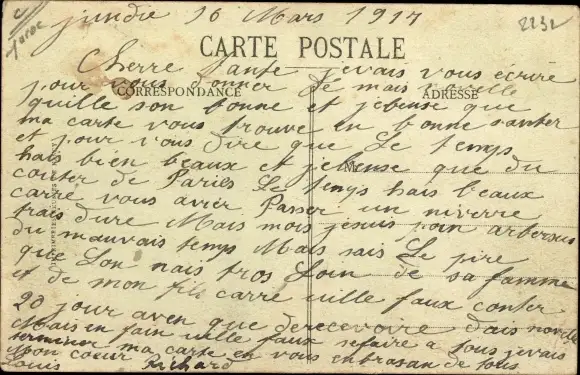 jeudie 16 Mars 1917
2232
Maroc
CARTE POSTALE
Cherre tante jevais vous écrire
pour vous donner de mais nouvelle
CORRESPONDANCE
ADRESSE
quille son bonne et jebense que
ma carte vous trouve en bonne santer
et pour vous dire que Le temps
hais bien beaux et jebense que du
couter de Pariès Le temps hais beaux
carre vous avier Passer un niverre
trais dure Mais mois jesuis poin
du mauvais temps Mais sais Le pire
que Lon nais tros Loin de sa famme
et de mon fils carre ville faux conter
20 jour aven que derecevoire dais nouvelle
Mais en fain ville faux sefaire a tous jevais
terminer ma carte en vous enbrasan de tous
Mon coeur Richard
Louis